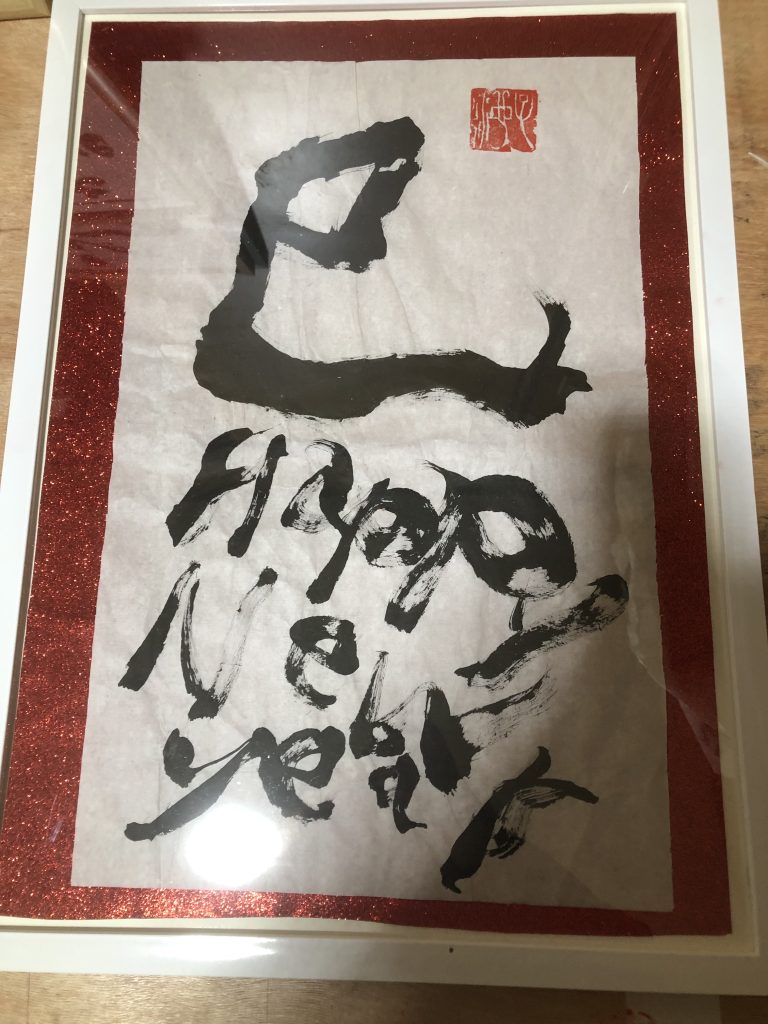 巳
Happy
New
year